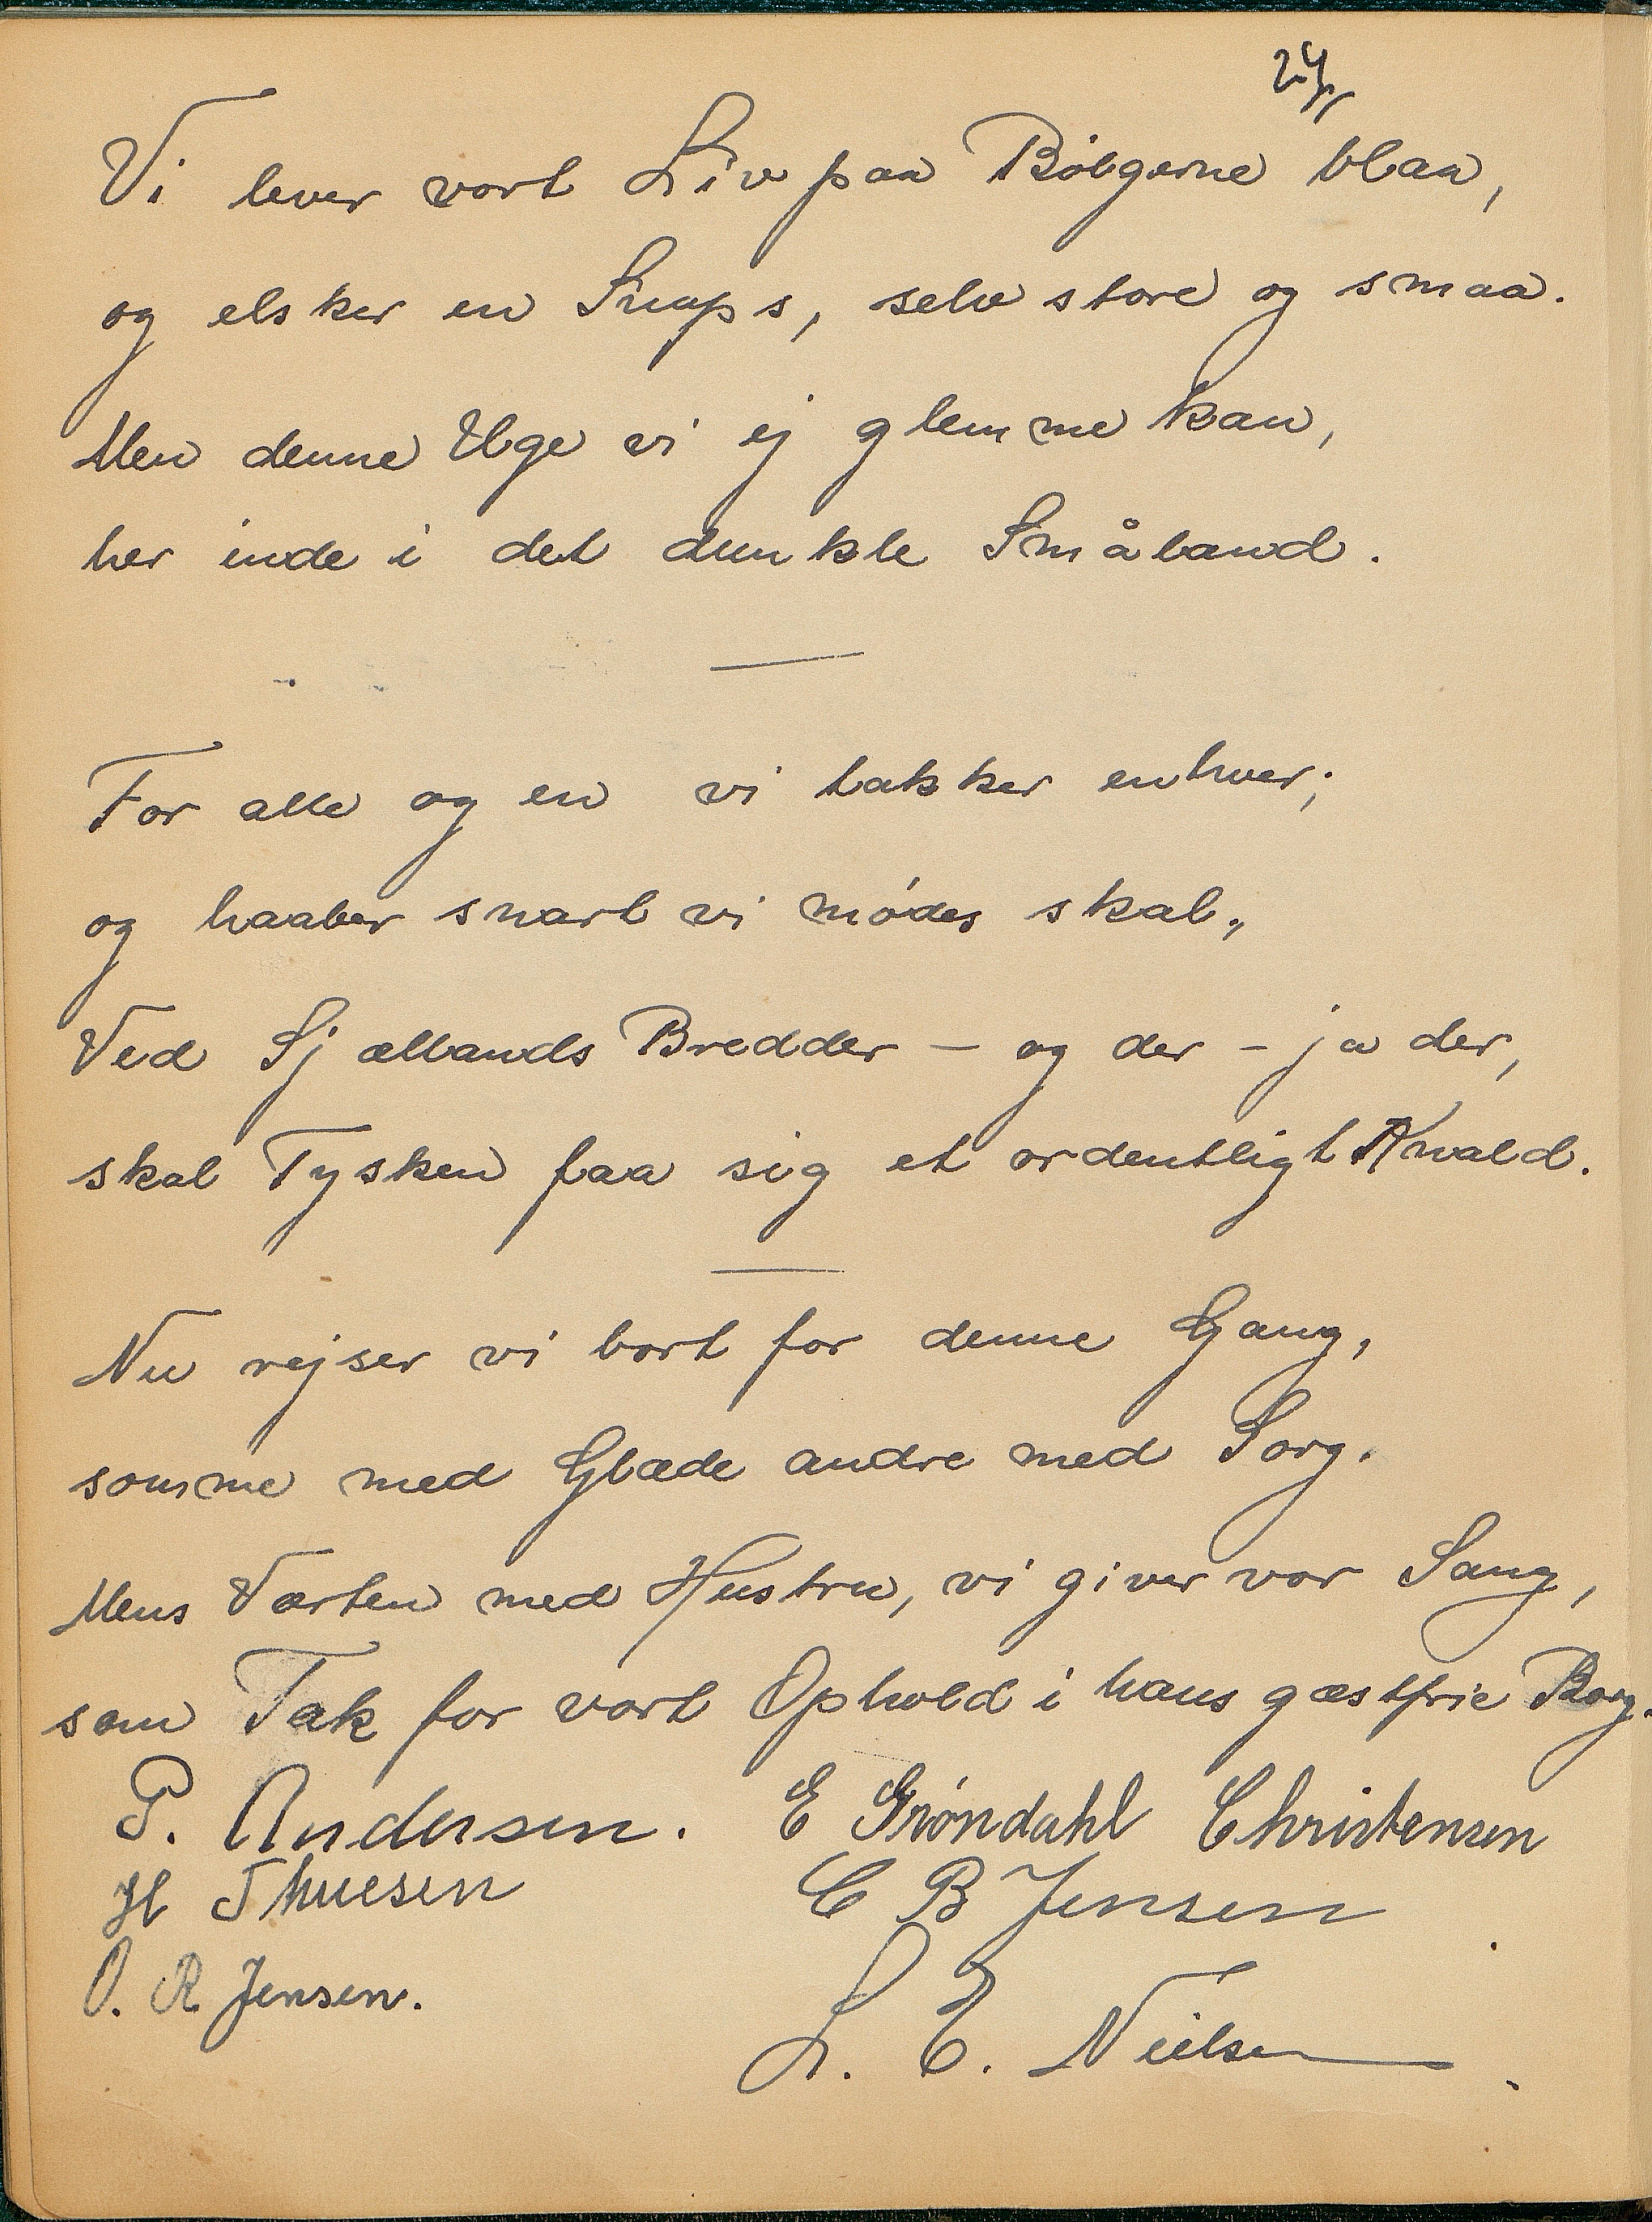 Vi lever vort Liv paa Bølgerne blaa,
og elsker en Snaps, selv store og smaa.
Men denne Uge vi ej glemme kan,
her inde i det dunkle Småland.
For alle og en vi takker enhver;
og haaber snart vi mødes skal,
Ved Sjællands Bredder - og der - ja der,
skal Tysken faa sig et ordentligt Knald.
Nu rejser vi bort for denne Gang,
somme med Glæde andre med Sorg.
Mens Værten med Hustru, vi giver vor Sang,
som Tak for vort Ophold i hans gæstfrie Borg.
P. Andersen. E Grøndahl Christensen
H Thuesen C B Jensen
O. R Jensen.
L. E. Nielsen